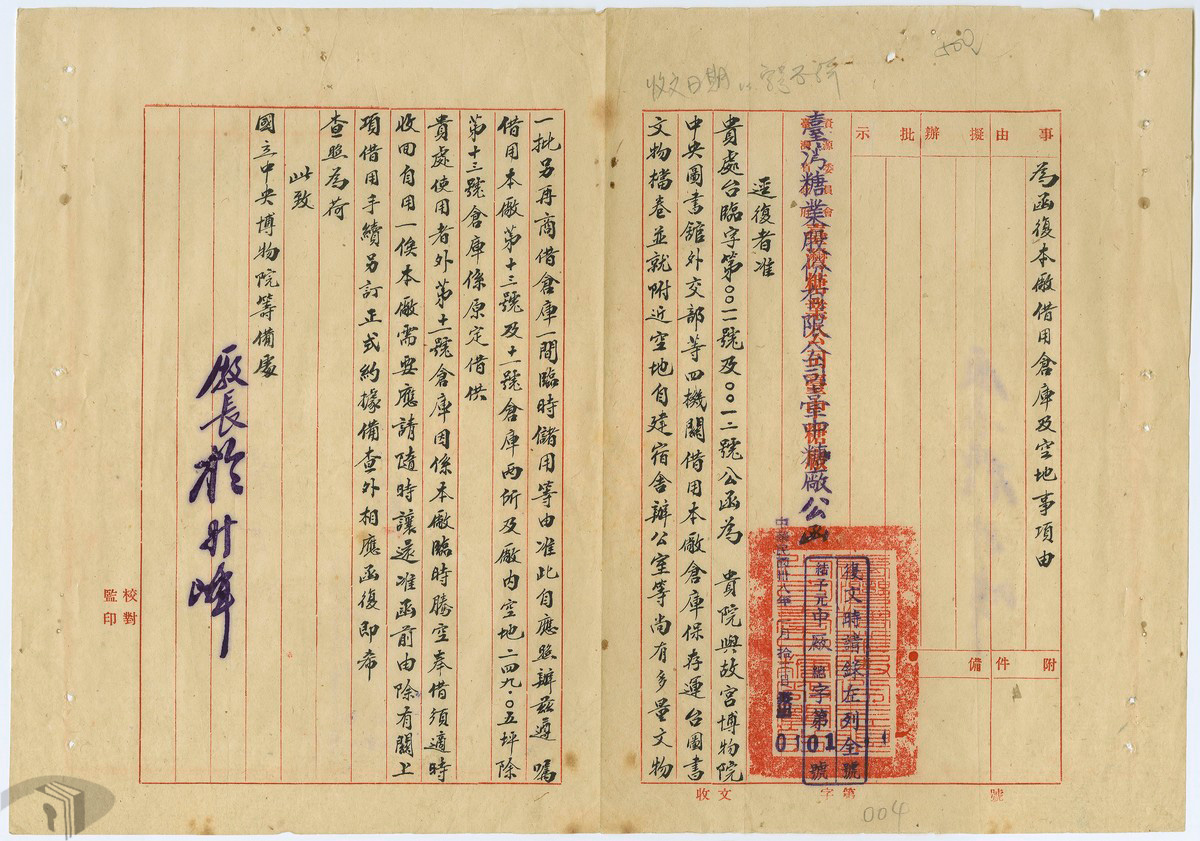 500
收文日期
事由
擬辦
批示
附件
備
為函復本廠借用倉庫及空地事項由
資源委員會
臺灣糖業股份有限公司臺中糖廠公函
復文時請錄左列全號
結子元中廠總字第01號
中華民國卅八年一月拾
逕復者准
貴處台臨字第〇〇一號及〇〇一二號公函為 貴院與故宮博物院
中央圖書館外交部等四機關借用本廠倉庫保存運台圖書
文物檔卷並就附近空地自建宿舍辦公室等尚有多量文物
一批另再商借倉庫一間臨時儲用等由准此自應照辦茲遵囑
借用本廠第十三號及十一號倉庫兩所及廠內空地二四九.〇五坪除
第十三號倉庫係原定借供
貴處使用者外第十一號倉庫因係本廠臨時騰空奉借須適時
收回自用一俟本廠需要應請隨時讓還准函前由除有關上
項借用手續另訂正式約據備查外相應函復即希
查照為荷
此致
國立中央博物院籌備處
廠長於升峰
校對
監印
收文 字第 號
004